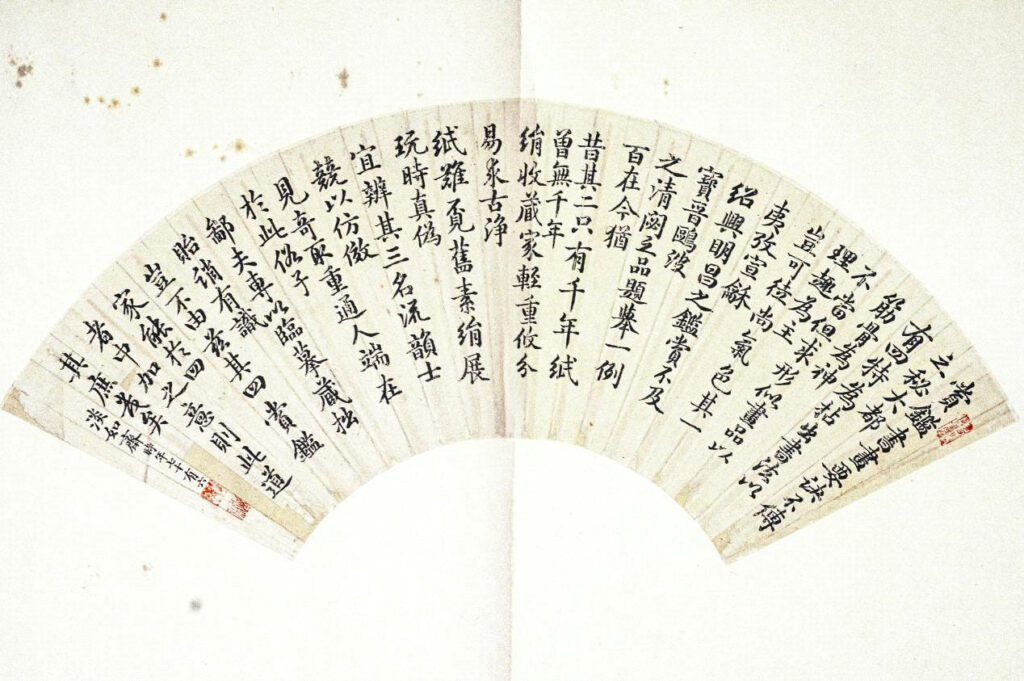 賞鑑書畫要訣不傳
之秘大都
有四特為拈出書法以
筋骨為神
不當但求形似畫品以
理趣為主
豈可位尚氣色其一
夷攷宣龢
紹興明昌之鑑賞不及
寶晉鷗波
之清閟之品題舉一例
百在今猶
昔其二只有千年紙
曾無千年
絹收藏家輕重攸分
易求古淨
紙難覓舊素絹展
玩時真偽
宜辨其三名流韻士
競以仿倣
見奇取重通人端在
於此俗子
鄙夫專以臨摹藏拙
貽誚有識
豈不由茲其四賞鑑
家能於四
者中加之意則此道
其庶幾矣
淡如齋時年七十有六